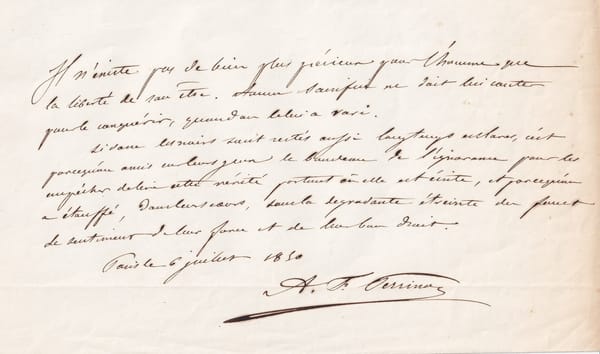 Il n'éxiste pas de bien plus précieux pour l'homme que
la liberté de son être. Aucun sacrifice ne doit lui couter
pour le conquérir, quand on le lui a ravi.
Si donc les noirs sont restés aussi longtemps esclaves, c'est
parcequ'on a mis sur leurs yeux le bandeau de l'ignorance pour les
empêcher de lire cette vérité partout où elle est écrite, et parcequ'on
a étouffé, dans leurs cœurs, sous la dégradante étreinte du fouet
le sentiment de leur force et de leur bon droit.
Paris le 6 juillet 1850
A. F. Perrinon